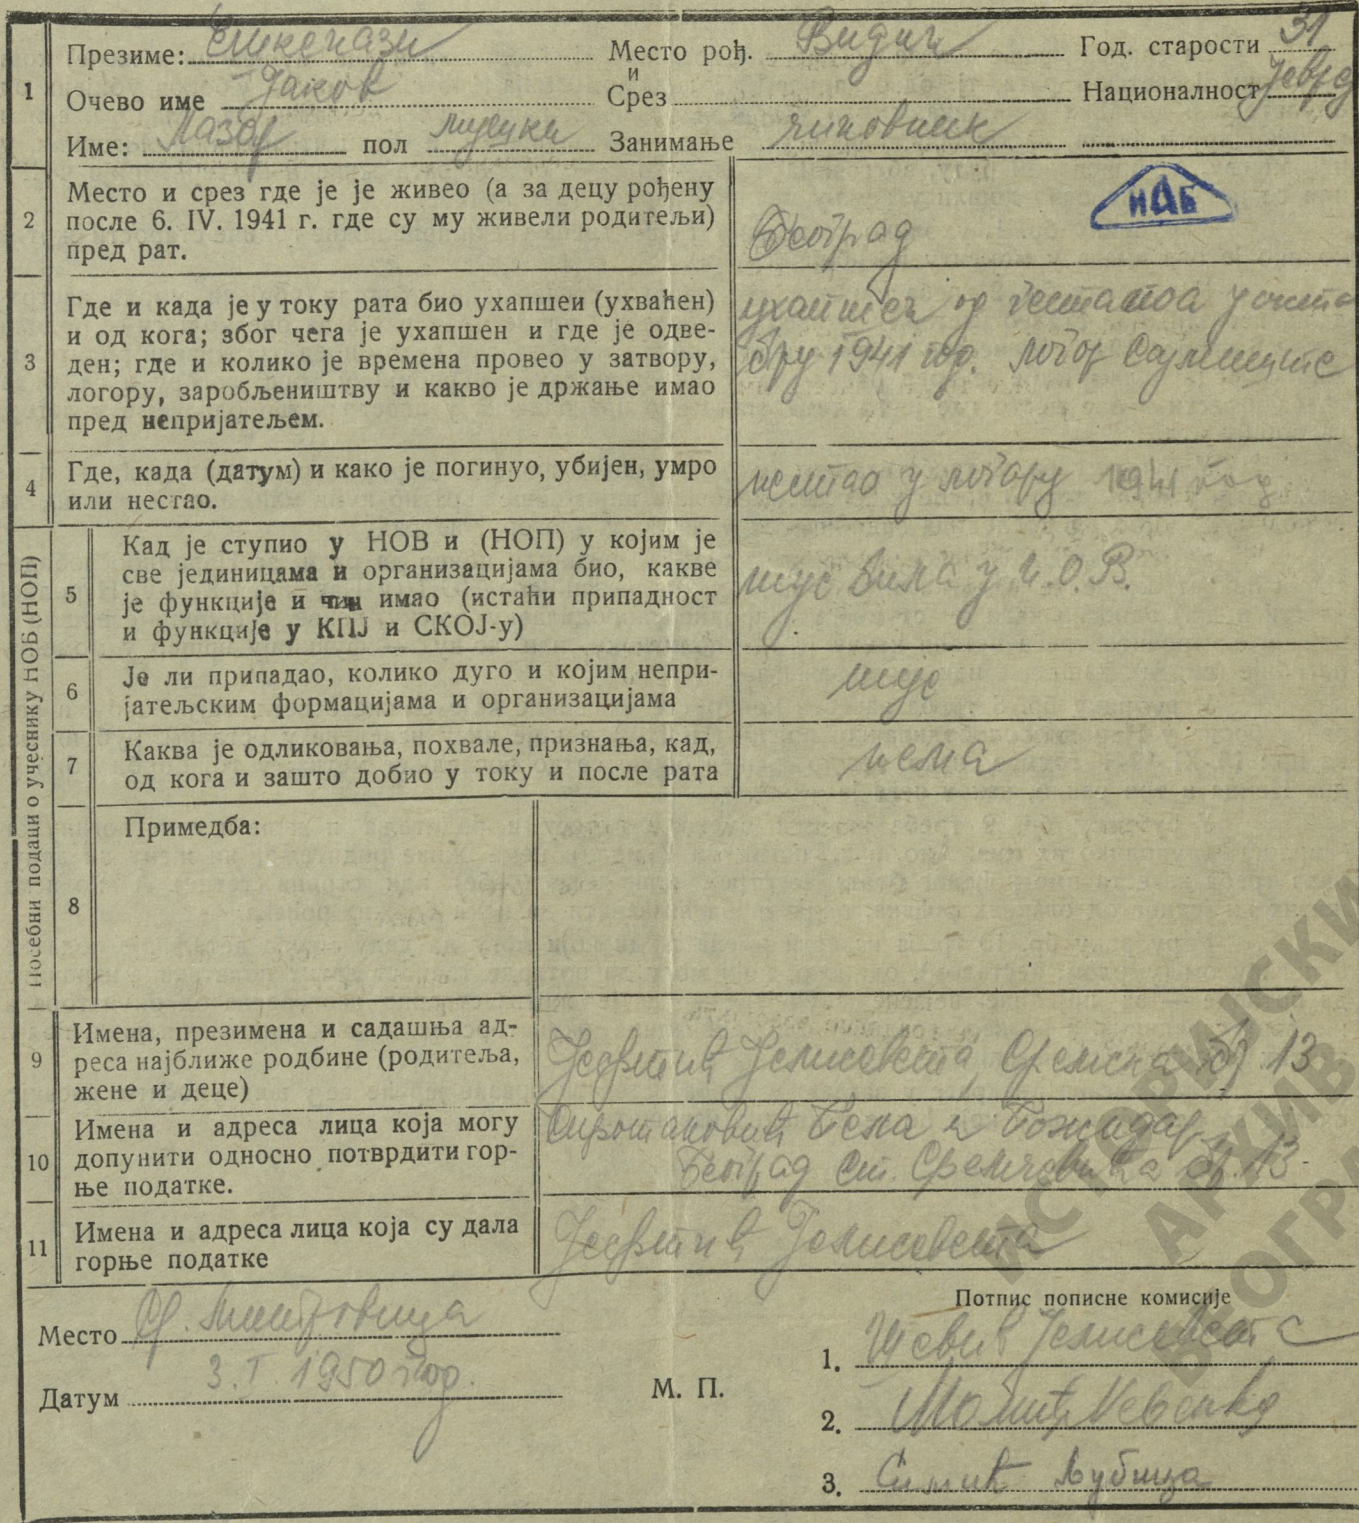 1
Презиме: Ешкенази Место рођ. Видин Год. старости 31
и
Очево име Јаков Срез Националност Јевреј
Име: Лазар пол мушки Занимање чиновник
2
Место и срез где је је живео (а за децу рођену
после 6. IV. 1941 г. где су му живели родитељи)
пред рат.
Београд
НАБ
3
Где и када је у току рата био ухапшеи (ухваћен)
и од кога; због чега је ухапшен и где је одве-
ден; где и колико је времена провео у затвору,
логору, заробљеништву и какво је држање имао
пред непријатељем.
ухапшен од гестапоа у окто
бру 1941 год. логор Сајмиште
4
Где, када (датум) и како је погинуо, убијен, умро
или нестао.
нестао у логору 1941 год
Посебни подаци о учеснику НОБ (НОП)
5
Кад је ступио у НОВ и (НОП) у којим је
све јединицама и организацијама био, какве
је функције и чин имао (истаћи припадност
и функције у КПЈ и СКОЈ-у)
није била у Н.О.В.
6
Је ли припадао, колико дуго и којим непри-
јатељским формацијама и организацијама
није
7
Каква је одликовања, похвале, признања, кад,
од кога и зашто добио у току и после рата
нема
8
Примедба:
9
Имена, презимена и садашња ад-
реса најближе родбине (родитеља,
жене и деце)
Јелисавета, Сремска бр 13
10
Имена и адреса лица која могу
допунити односно потврдити гор-
ње податке.
Бела и Божидар
Београд ст. бр. 13
11
Имена и адреса лица која су дала
горње податке
Јелисавета
Место Ср. Митровица
Датум 3. I. 1950 год.
М. П.
Потпис пописне комисије
1. Јелисавета
2. Невенка
3. Симић Љубица
ИСТОРИЈСКИ
АРХИВ
БЕОГРА